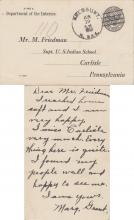 Department of the Interior.
Mr. M. Friedman
Supt. U. S. Indian School,
Carlisle
Pennsylvania
Dear Mr. Friedman
I reached home
and
very happy.
I miss Carlisle
very much. Every
thing here is quiet.
I found my
people well and
happy to see me.
I am yours.
Mary